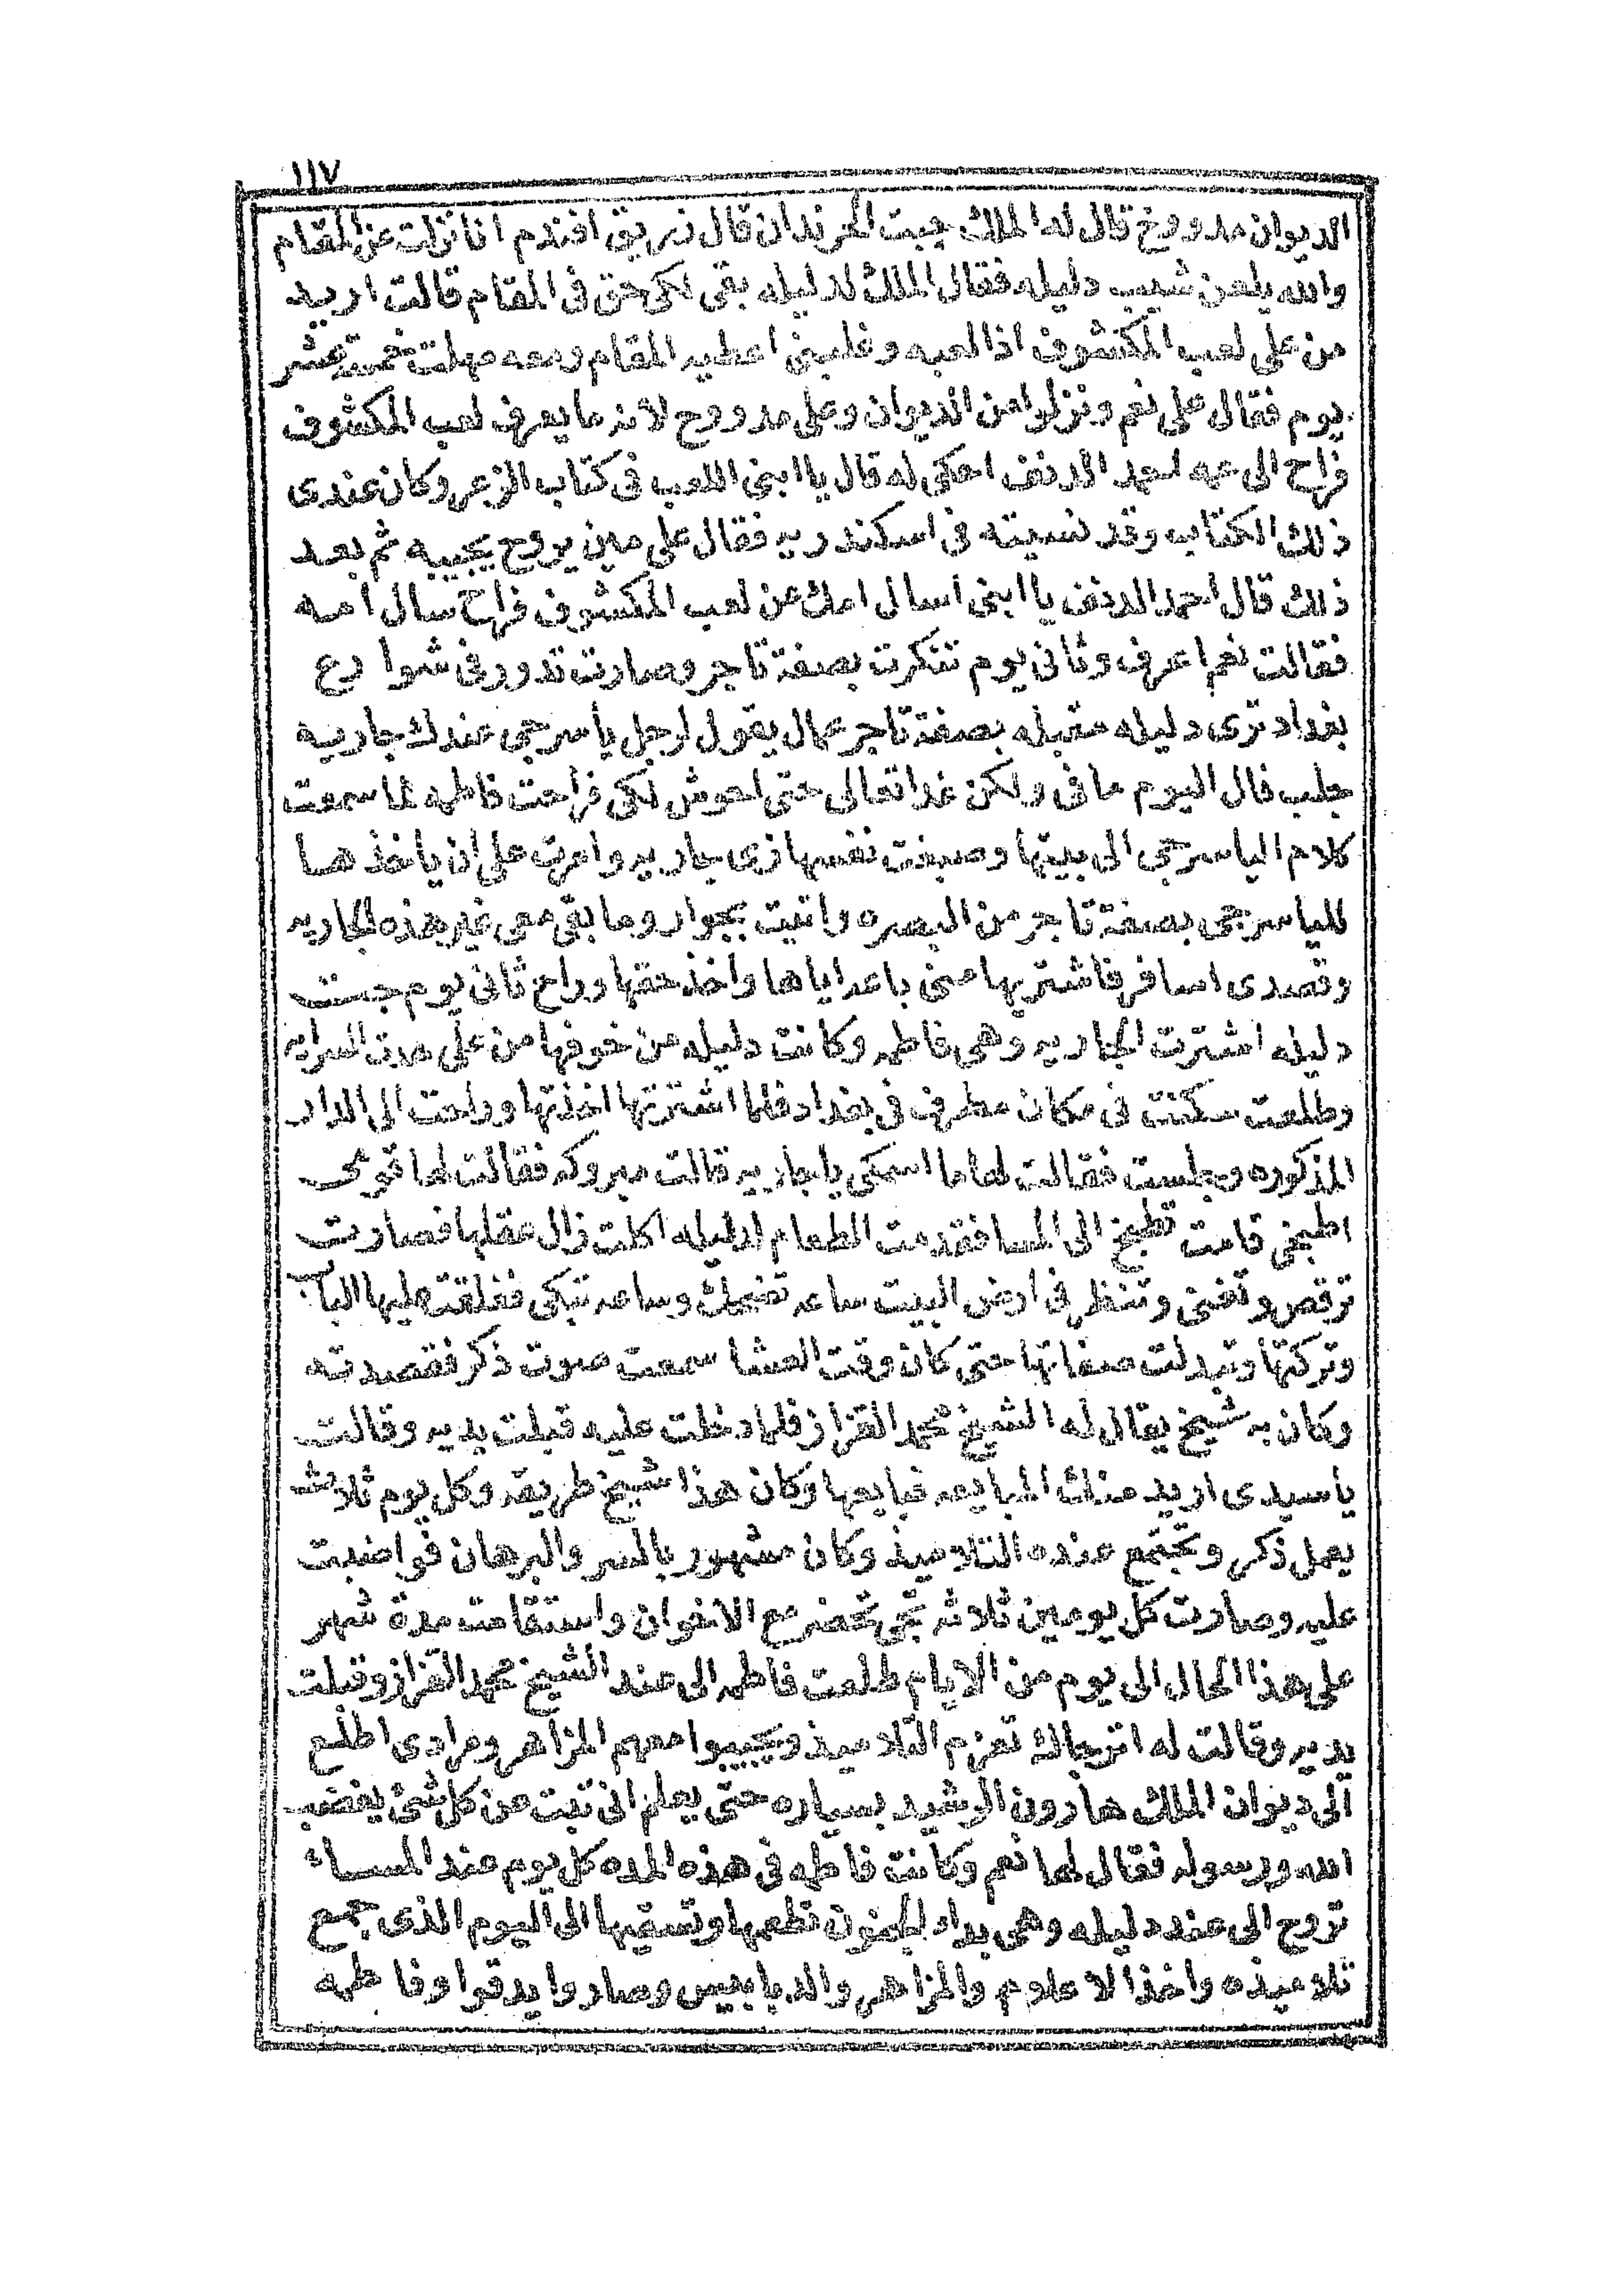 ١١٧
الديوان مدووخ قال له الملك جبت الحرندان قال زريق افندم انا نزلت عن المقام
والله يلعن شيب دليله فقال الملك لدليله بقى لكى حق فى المقام قالت اريد
من على لعب المكشوف اذا لعبه وغلبنى اعطيه المقام ومعه مهلت خمسة عشر
يوم فقال على نعم ونزلوا من الديوان وعلى مدووخ لانه ما يعرف لعب المكشوف
فراح الى عمه احمد الدنف احكى له قال يا ابنى اللعب فى كتاب الزعر وكان عندى
ذلك الكتاب وقد نسيته فى اسكندريه فقال على مين يروح يجيبه ثم بعد
ذلك قال احمد الدنف يا ابنى اسال امك عن لعب المكشوف فراح سال امه
فقالت نعم اعرف وثانى يوم تنكرت بصفة تاجر وصارت تدور فى شوارع
بغداد ترى دليله مقبله بصفة تاجر عمال يقول لرجل ياسرجى عندك جاريه
جلب قال اليوم ما فى ولكن غدا تعالى حتى احوش لكى فراحت فاطمه لما سمعت
كلام الياسرجى الى بيتها وصبغت نفسها زى جاريه وامرت على ان ياخذها
للياسرجى بصفة تاجر من البصره واتيت بجوار وما بقى معى غير هذه الجاريه
وقصدى اسافر فاشتريها منى باعه اياها واخذ حقها وراح ثانى يوم جت
دليله اشترت الجاريه وهى فاطمه وكانت دليله من خوفها من على هدت السرايه
وطلعت سكنت فى مكان مطرف فى بغداد فلما اشترتها اخذتها وراحت الى الدار
المذكوره وجلست فقالت لها ما اسمكى يا جاريه قالت مبروكه فقالت لها قومى
اطبخى قامت تطبخ الى المسا فقدمت الطعام لدليله اكلت زال عقلها فصارت
ترقص وتغنى وتنظر فى ارض البيت ساعه تضحك وساعه تبكى فغلقت عليها الباب
وتركتها وتبدلت صفاتها حتى كان وقت العشا سمعت صوت ذكر فقصدته
وكان به شيخ يقال له الشيخ محمد القزاز فلما دخلت عليه قبلت يديه وقالت
يا سيدى اريد منك المبايعه فبايعها وكان هذا شيخ طريقه وكل يوم ثلاث
يعمل ذكر وتجتمع عنده التلاميذ وكان مشهور بالسر والبرهان فواضبت
عليه وصارت كل يومين ثلاثه تجى تحضر مع الاخوان واستقامت مدة شهر
على هذا الحال الى يوم من الايام طلعت فاطمه الى عند الشيخ محمد القزاز وقبلت
يديه وقالت له اترجاك تعزم التلاميذ ويجيبوا معهم المزاهر ومرادى اطلع
الى ديوان الملك هارون الرشيد بسياره حتى يعلم انى تبت عن كل شئ يغضب
الله ورسوله فقال لها نعم وكانت فاطمه فى هذه المده كل يوم عند المسا
تروح الى عند دليله وهى بداء الجنون تطعمها وتسقيها الى اليوم الذى جمع
تلاميذه واخذ الاعلوم والمزاهر والدبابيس وصاروا يدقوا وفاطمه